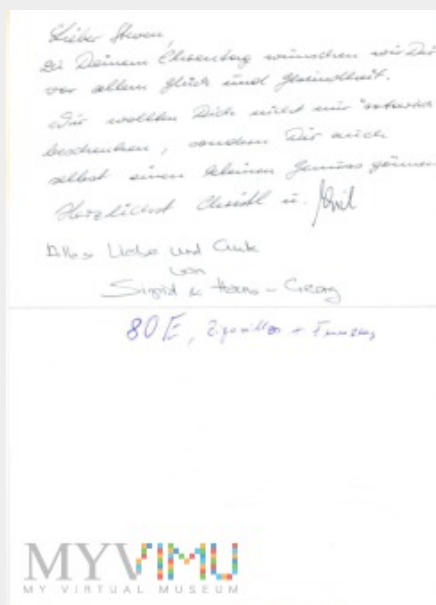 Lieber Steven,
zu Deinem Ehrentag wünschen wir Dir
vor allem Glück und Gesundheit.
Wir wollten Dich nicht nur
beschenken, sondern Dir auch
selbst einen kleinen Genuss gönnen
Herzlichst Christl u.
Alles Liebe und Gute
von
Sigrid & Hans-Georg
80 E, Zigarillos +
MYVIMU
MY VIRTUAL MUSEUM